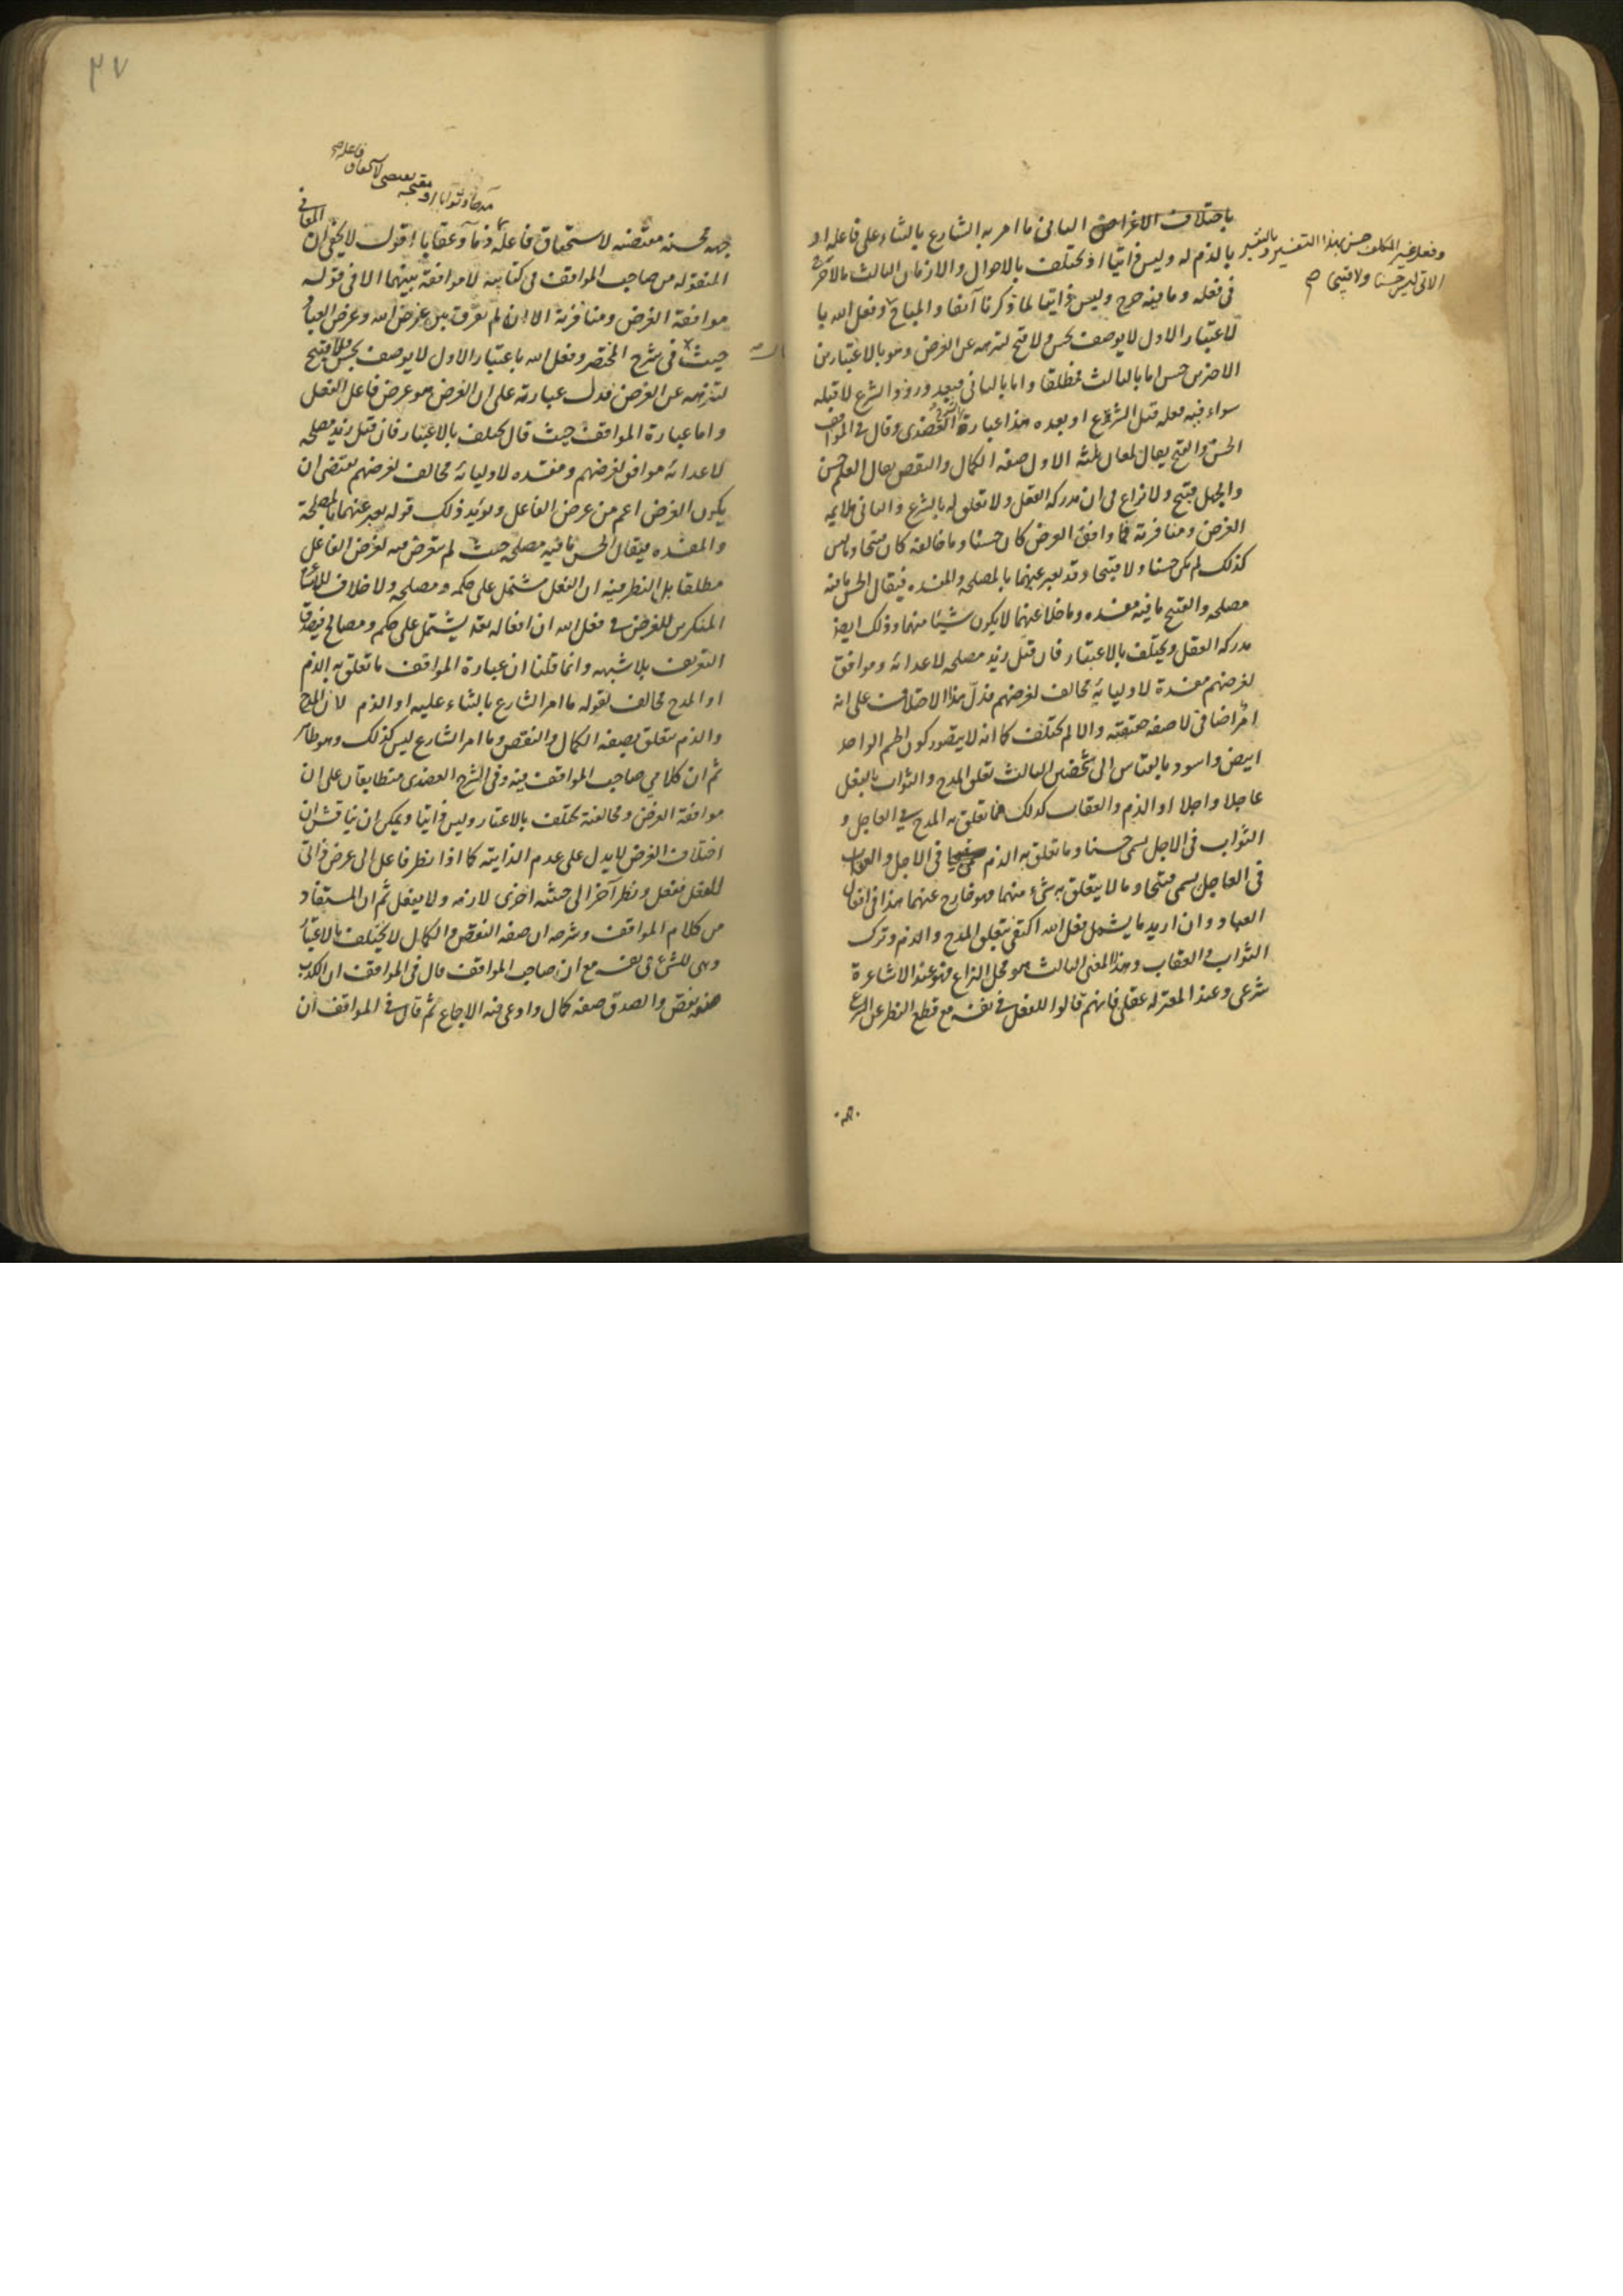 باختلاف الاغراض الثاني ما امر به الشارع بالثناء على فاعله او
بالذم له وليس ذاتيا اذ يختلف بالاحوال والازمان الثالث ما لا حرج
في فعله وما فيه حرج وليس ذاتيا لما ذكرنا آنفا والمباح وفعل الله با
لاعتبار الاول لا يوصف بحسن ولا قبح لتنزهه عن الغرض وهو بالاعتبارين
الاخرين حسن اما بالثالث فمطلقا واما بالثاني فبعد ورود الشرع لا قبله
سواء فيه فعله قبل الشرع او بعده هذا عبارة العضدي وقال في المواقف
الحسن والقبح يقال لمعان ثلثة الاول صفة الكمال والنقص يقال العلم حسن
والجهل قبيح ولا نزاع في ان مدركه العقل ولا تعلق له بالشرع والثاني ملايمة
الغرض ومنافرته فما وافق الغرض كان حسنا وما خالفه كان قبيحا وما ليس
كذلك لم يكن حسنا ولا قبيحا وقد يعبر عنهما بالمصلحة والمفسدة فيقال الحسن ما فيه
مصلحة والقبيح ما فيه مفسدة وما خلا عنهما لا يكون شيئا منهما وذلك ايضا
مدركه العقل ويختلف بالاعتبار فان قتل زيد مصلحة لاعدائه وموافق
لغرضهم مفسدة لاوليايه مخالف لغرضهم فدل هذا الاختلاف على انه
امر اضافي لا صفة حقيقية والا لم يختلف كما انه لا يتصور كون الجسم الواحد
ابيض واسود بالقياس الى شخصين الثالث تعلق المدح والثواب بالفعل
عاجلا واجلا او الذم والعقاب كذلك فما تعلق به المدح في العاجل و
الثواب في الاجل يسمى حسنا وما تعلق به الذم في الاجل والعقاب
في العاجل يسمى قبيحا وما لا يتعلق به شيء منهما فهو خارج عنهما هذا في افعال
العباد وان اريد ما يشمل فعل الله اكتفى بتعلق المدح والذم وترك
الثواب والعقاب وهذا المعنى الثالث هو محل النزاع فهو عند الاشاعرة
شرعي وعند المعتزلة عقلي فانهم قالوا للفعل في نفسه مع قطع النظر عن الشرع
وفعل غير المكلف حسن بهذا التفسير وبالتفسير
الاتي ليس حسنا ولا قبيحا صح
جهة
٣٧
مدحا وثوابا او مقبحة يقتضي لاستحقاق فاعله صح
جهة محسنة مقتضية لاستحقاق فاعله ذما وعقابا اقول لا يخفى ان المعاني
المنقولة من صاحب المواقف في كتابيه لا موافقة بينهما الا في قوله
موافقة الغرض ومنافرته الا ان لم نفرق بين غرض الله وغرض العباد
حيث في شرح المختصر وفعل الله باعتبار الاول لا يوصف بحسن ولا قبح
لتنزهه عن الغرض فدل عبارته على ان الغرض هو غرض فاعل الفعل
واما عبارة المواقف حيث قال يختلف بالاعتبار فان قتل زيد مصلحة
لاعدائه موافق لغرضهم ومفسدة لاوليائه مخالف لغرضهم يقتضي ان
يكون الغرض اعم من غرض الفاعل ويؤيد ذلك قوله يعبر عنهما بالمصلحة
والمفسدة فيقال الحسن ما فيه مصلحة حيث لم يتعرض فيه لغرض الفاعل
مطلقا بل النظر فيه ان الفعل مشتمل على حكمة ومصلحة ولا خلاف للاشاعرة
المنكرين للغرض في فعل الله ان افعاله تعالى يشتمل على حكم ومصالح فيصدق
التعريف بلا شبهة وانما قلنا ان عبارة المواقف ما تعلق به الذم
او المدح مخالف لقوله ما امر الشارع بالثناء عليه او الذم لان المدح
والذم يتعلق بصفة الكمال والنقص وما امر الشارع ليس كذلك وهو ظاهر
ثم ان كلامي صاحب المواقف فيه وفي الشرح العضدي متطابقان على ان
موافقة الغرض ومخالفته يختلف بالاعتبار وليس ذاتيا ويمكن ان يناقش ان
اختلاف الغرض لا يدل على عدم الذاتية كما اذا نظر فاعل الى غرض ذاتي
للفعل ففعل ونظر آخر الى حيثية اخرى لازمة ولا يفعل ثم ان المستفاد
من كلام المواقف وشرحه ان صفة النقص والكمال لا يختلف بالاعتبار
وهي للشيء في نفسه مع ان صاحب المواقف قال في المواقف ان الكذب
صفة نقص والصدق صفة كمال وادعى فيه الاجماع ثم قال في المواقف ان